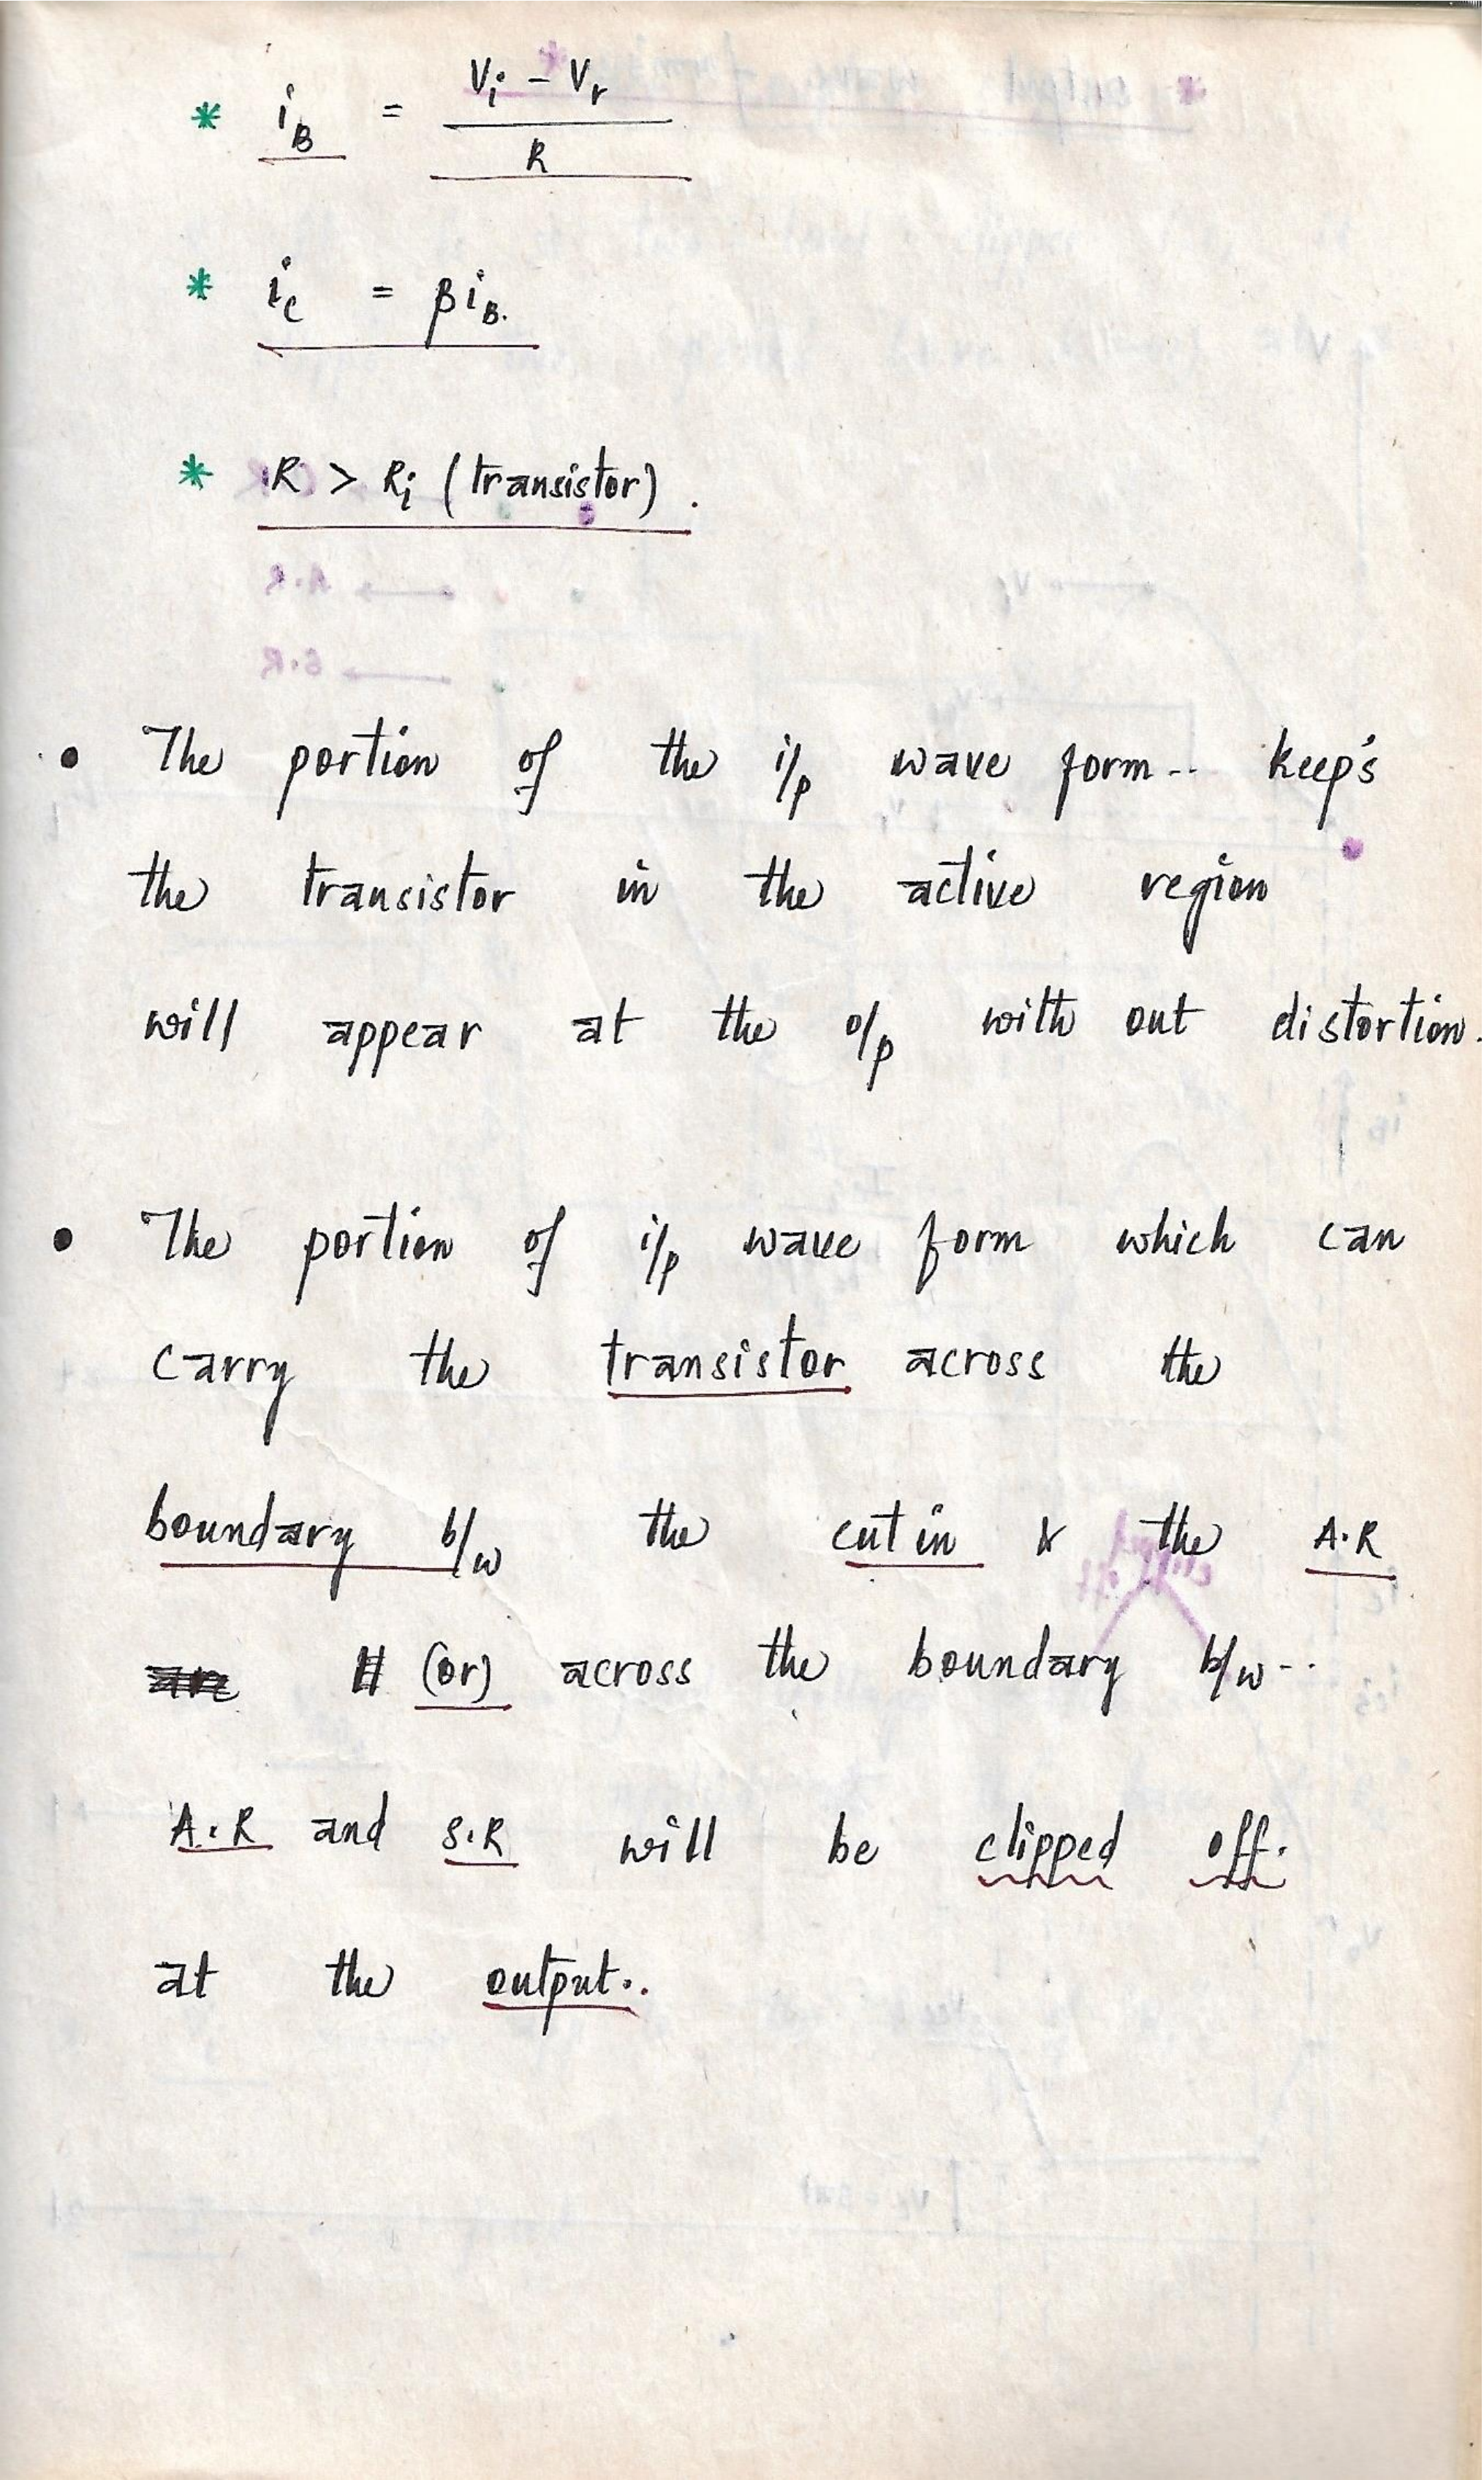 * i_B = (V_i - V_r) / R
* i_c = β i_B.
* R > R_i (transistor).
• The portion of the i/p wave form.. keep's
the transistor in the active region
will appear at the o/p with out distortion.
• The portion of i/p wave form which can
carry the transistor across the
boundary b/w the cut in & the A.R
(or) across the boundary b/w..
A.R and S.R will be clipped off.
at the output..